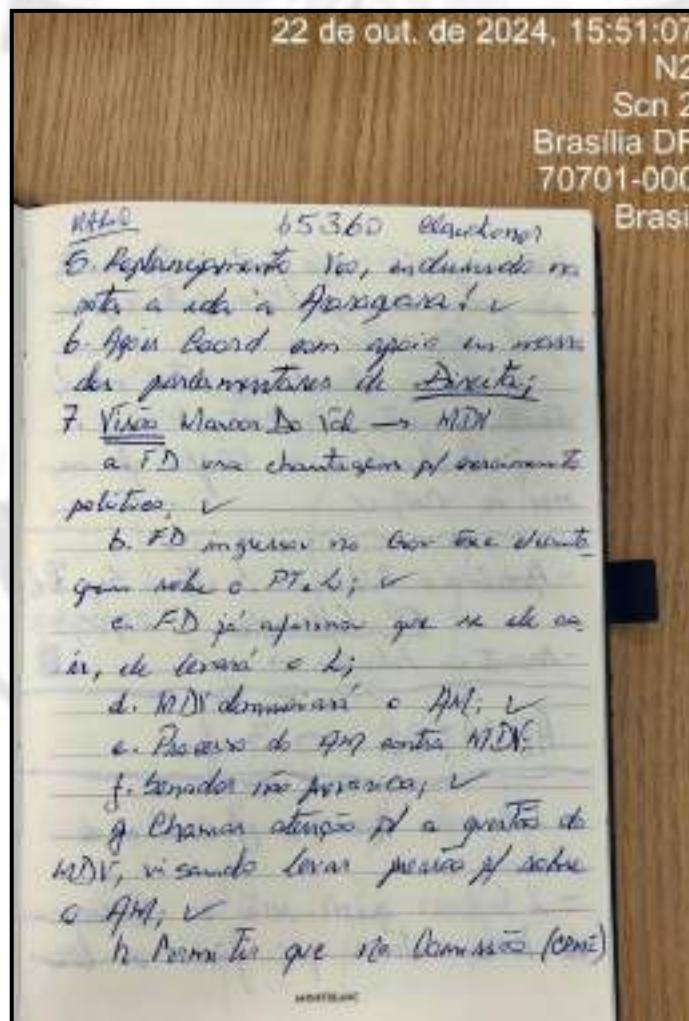 22 de out. de 2024, 15:51:07
N2
Scn 2
Brasília DF
70701-000
Brasil
65360
5. Replanejamento Voo, incluindo na
rota a ida a Araraquara! ✓
6. Ações Coord com apoio em massa
dos parlamentares de Direita;
7. Visão Marcos Do Val → MDV
a. FD usa chantagem p/ crescimento
político; ✓
b. FD ingressou no Gov fez chanta
gem sobre o PT e L; ✓
c. FD já afirmou que se ele ca
ir, ele levará o L;
d. MDV denunciará o AM; ✓
e. Processo do AM contra MDV;
f. Senador não ; ✓
g. Chamar atenção p/ a questão do
MDV, visando levar pressão p/ sobre
o AM; ✓
h. Permitir que na Comissão (CPMI)
MONTBLANC